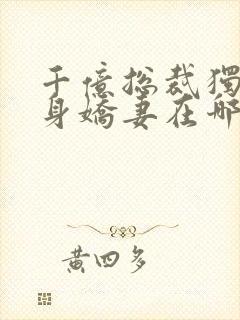 千億总裁獨
身嬌妻在哪
黄四多